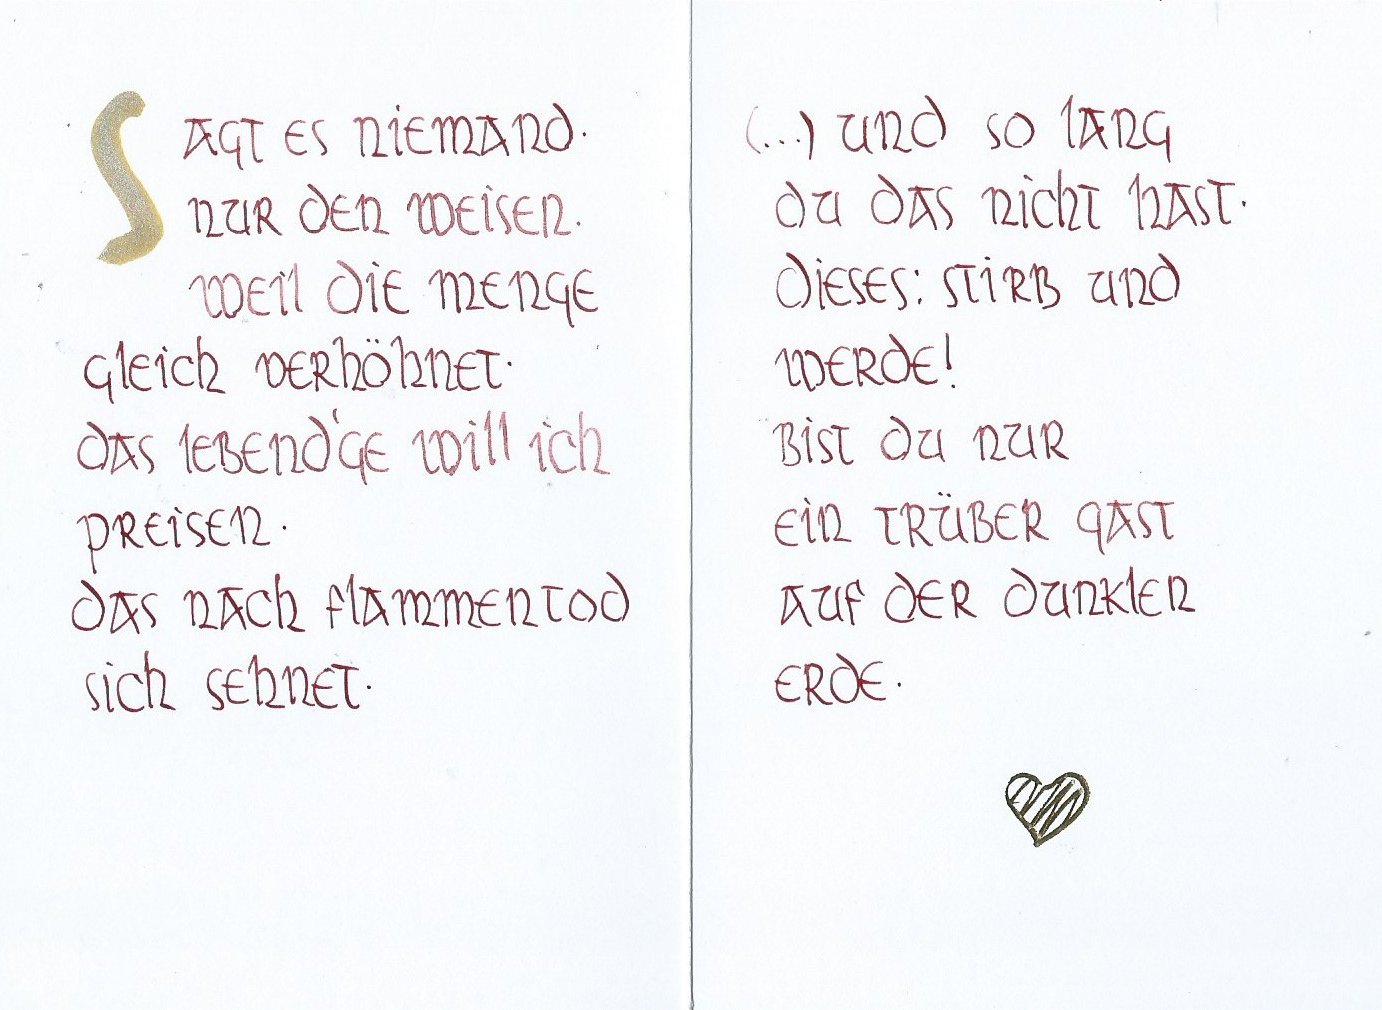 Sagt es niemand·
nur den weisen.
weil die menge
gleich verhöhnet·
das lebend'ge will ich
preisen·
das nach flammentod
sich sehnet·
(...) und so lang
du das nicht hast·
dieses: stirb und
werde!
bist du nur
ein trüber gast
auf der dunklen
erde·